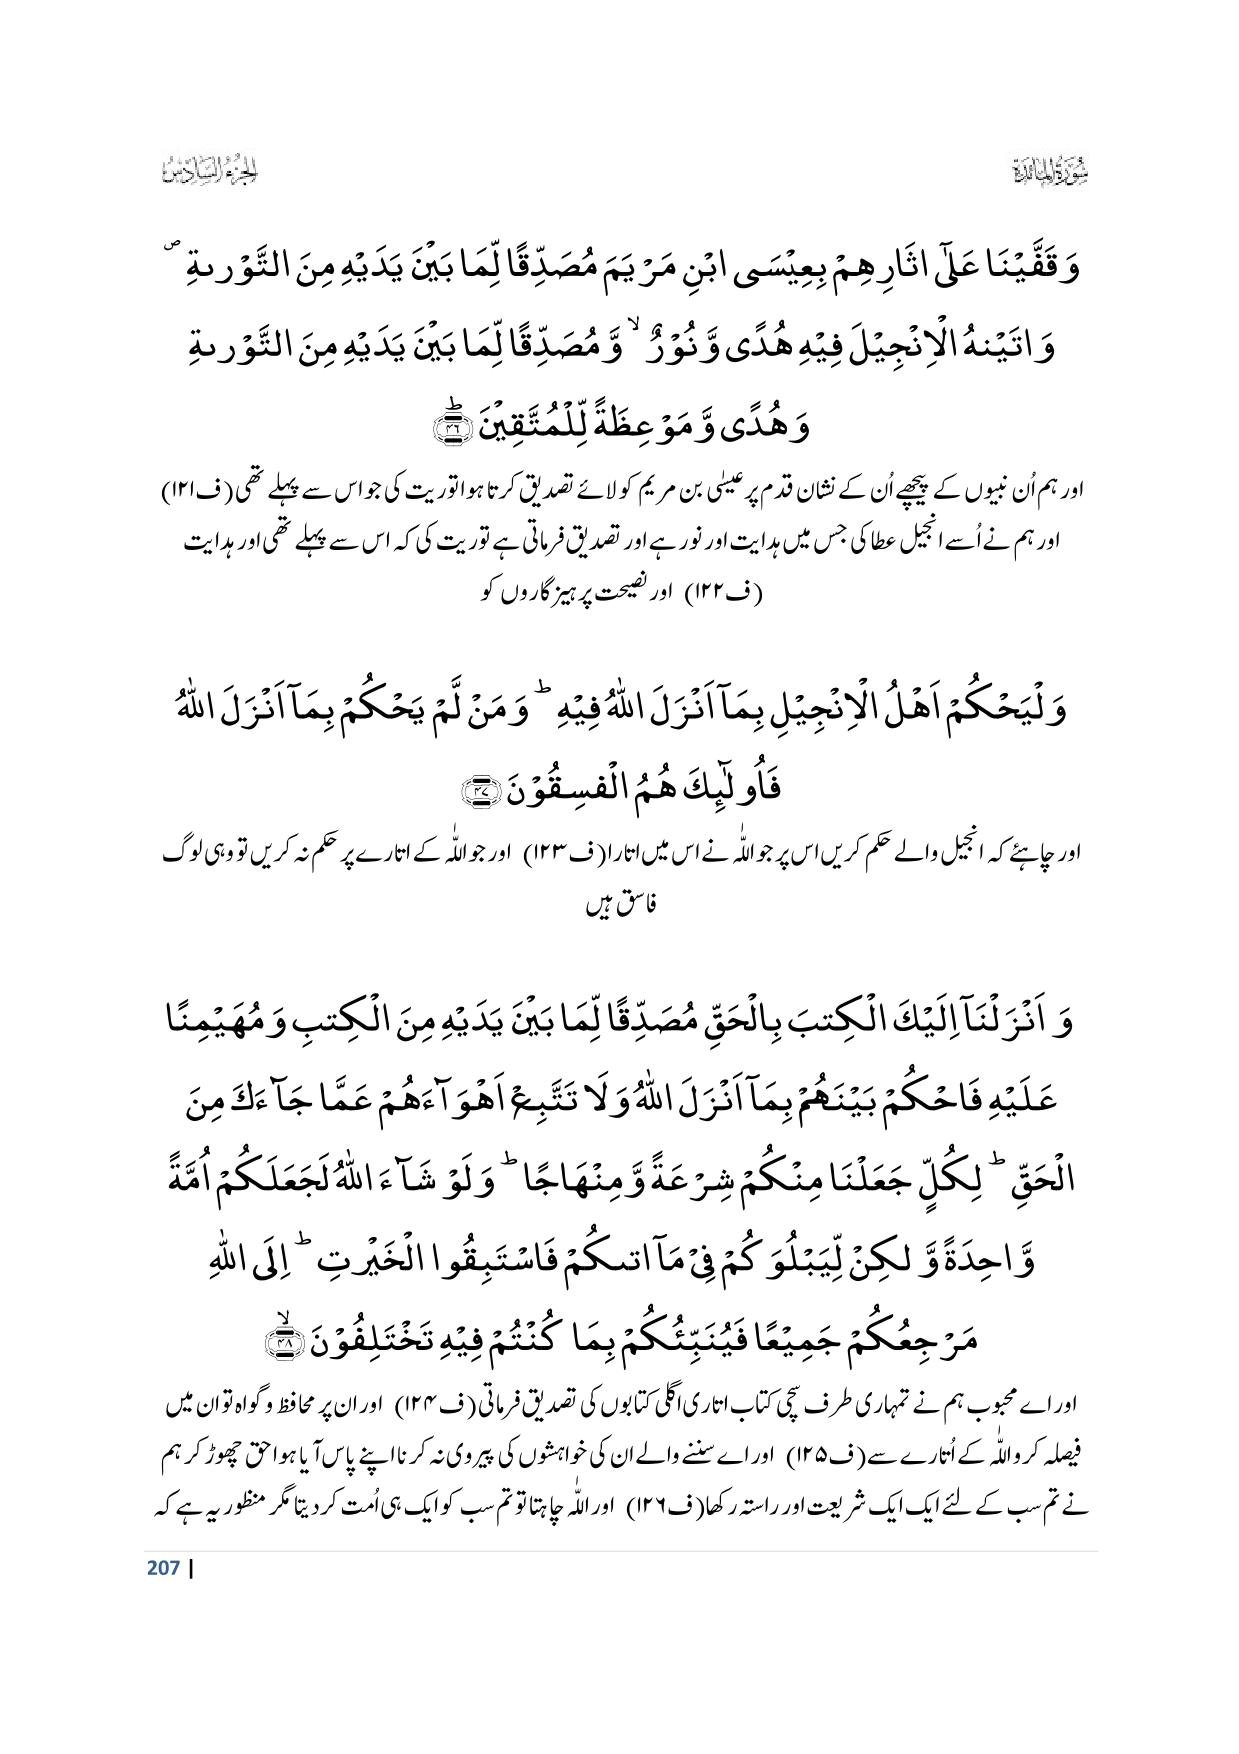 سُوْرَۃُ الْمَائِدَۃ
الجزء السَّادِسُ
وَ قَفَّیْنَا عَلٰۤی اٰثَارِهِمْ بِعِیْسَی ابْنِ مَرْیَمَ مُصَدِّقًا لِّمَا بَیْنَ یَدَیْهِ مِنَ التَّوْرٰىةِ ۪
وَ اٰتَیْنٰهُ الْاِنْجِیْلَ فِیْهِ هُدًی وَّ نُوْرٌ ۙ وَّ مُصَدِّقًا لِّمَا بَیْنَ یَدَیْهِ مِنَ التَّوْرٰىةِ
وَ هُدًی وَّ مَوْعِظَةً لِّلْمُتَّقِیْنَ ؕ﴿۴۶﴾
اور ہم اُن نبیوں کے پیچھے اُن کے نشان قدم پر عیسٰی بن مریم کو لائے تصدیق کرتا ہوا توریت کی جو اس سے پہلے تھی (ف۱۲۱)
اور ہم نے اُسے انجیل عطا کی جس میں ہدایت اور نور ہے اور تصدیق فرماتی ہے توریت کی کہ اس سے پہلے تھی اور ہدایت
(ف۱۲۲) اور نصیحت پرہیزگاروں کو
وَلْیَحْكُمْ اَهْلُ الْاِنْجِیْلِ بِمَاۤ اَنْزَلَ اللّٰهُ فِیْهِ ؕ وَ مَنْ لَّمْ یَحْكُمْ بِمَاۤ اَنْزَلَ اللّٰهُ
فَاُولٰٓئِكَ هُمُ الْفٰسِقُوْنَ ﴿۴۷﴾
اور چاہئے کہ انجیل والے حکم کریں اس پر جو اللّٰہ نے اس میں اتارا (ف۱۲۳) اور جو اللّٰہ کے اتارے پر حکم نہ کریں تو وہی لوگ
فاسق ہیں
وَ اَنْزَلْنَاۤ اِلَیْكَ الْكِتٰبَ بِالْحَقِّ مُصَدِّقًا لِّمَا بَیْنَ یَدَیْهِ مِنَ الْكِتٰبِ وَ مُهَیْمِنًا
عَلَیْهِ فَاحْكُمْ بَیْنَهُمْ بِمَاۤ اَنْزَلَ اللّٰهُ وَ لَا تَتَّبِعْ اَهْوَآءَهُمْ عَمَّا جَآءَكَ مِنَ
الْحَقِّ ؕ لِكُلٍّ جَعَلْنَا مِنْكُمْ شِرْعَةً وَّ مِنْهَاجًا ؕ وَ لَوْ شَآءَ اللّٰهُ لَجَعَلَكُمْ اُمَّةً
وَّاحِدَةً وَّ لٰكِنْ لِّیَبْلُوَكُمْ فِیْ مَاۤ اٰتٰىكُمْ فَاسْتَبِقُوا الْخَیْرٰتِ ؕ اِلَی اللّٰهِ
مَرْجِعُكُمْ جَمِیْعًا فَیُنَبِّئُكُمْ بِمَا كُنْتُمْ فِیْهِ تَخْتَلِفُوْنَ ۙ﴿۴۸﴾
اور اے محبوب ہم نے تمہاری طرف سچی کتاب اتاری اگلی کتابوں کی تصدیق فرماتی (ف۱۲۴) اور ان پر محافظ و گواہ تو ان میں
فیصلہ کرو اللّٰہ کے اُتارے سے (ف۱۲۵) اور اے سننے والے ان کی خواہشوں کی پیروی نہ کرنا اپنے پاس آیا ہوا حق چھوڑ کر ہم
نے تم سب کے لئے ایک ایک شریعت اور راستہ رکھا (ف۱۲۶) اور اللّٰہ چاہتا تو تم سب کو ایک ہی اُمت کر دیتا مگر منظور یہ ہے کہ
207 |